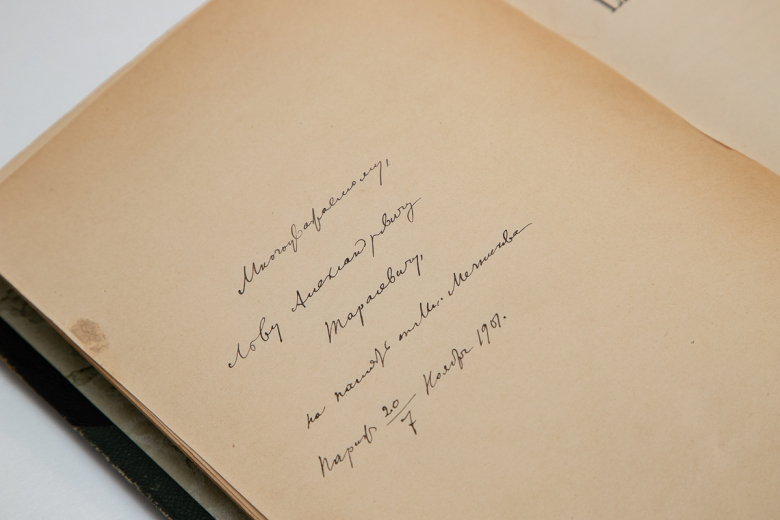 Многоуважаемому,
Льву Александровичу
Тарасевичу,
на память от Ил. Мечникова
Париж 20/7 Ноября 1901.